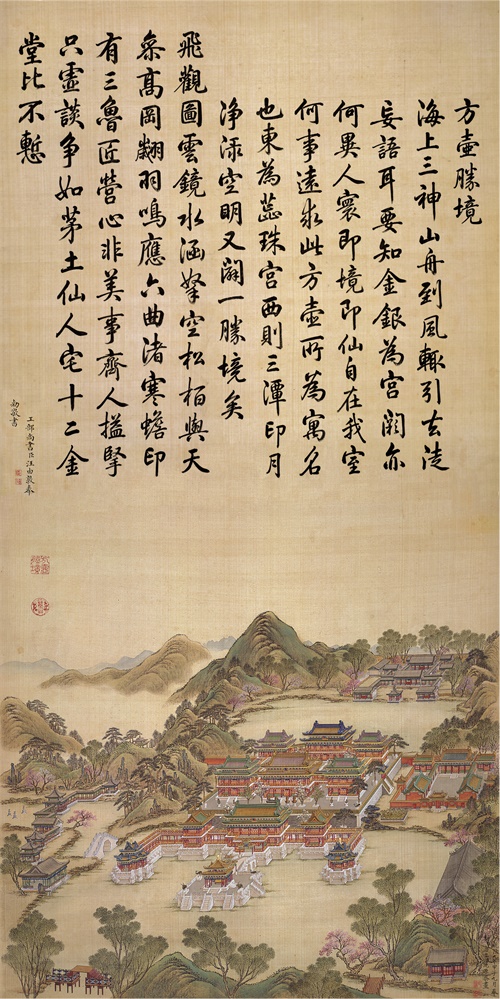 方壺勝境
海上三神山舟到風輒引去徒
妄語耳要知金銀為宮闕亦
何異人寰即境即仙自在我室
何事遠求此方壺所為寓名
也東為蕊珠宮西則三潭印月
淨淥空明又闢一勝境矣
飛觀圖雲鏡水涵拏空松柏與天
叅髙岡翽羽鳴應六曲渚寒蟾印
有三魯匠營心非美事齊人搤掔
只虛談爭如茅土仙人宅十二金
堂比不慙
工部尚書臣汪由敦奉
勅敬書